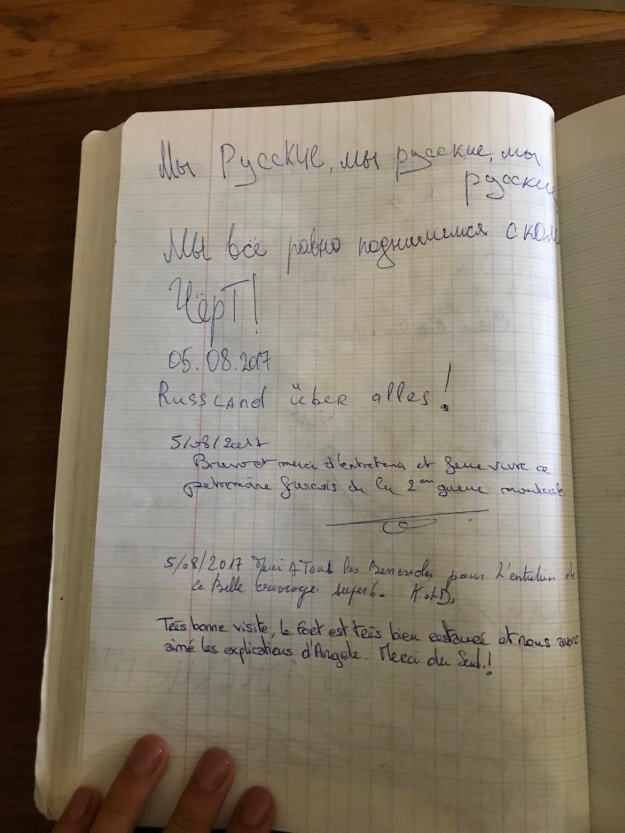 Мы Русские, мы русские, мы
русские
Мы всё равно поднимемся с кол
Чёрт!
05.08.2017
Russland über alles!
5/08/2017
Bravo et merci d'entretenir et faire vivre ce
patrimoine français de la 2em guerre mondiale
5/08/2017 Merci A Tous les Benevoles pour L'entretien de
ce Belle ouvrage superbe.
Très bonne visite, le fort est très bien restauré et nous avons
aimé les explications d'Angele. Merci du Sud!